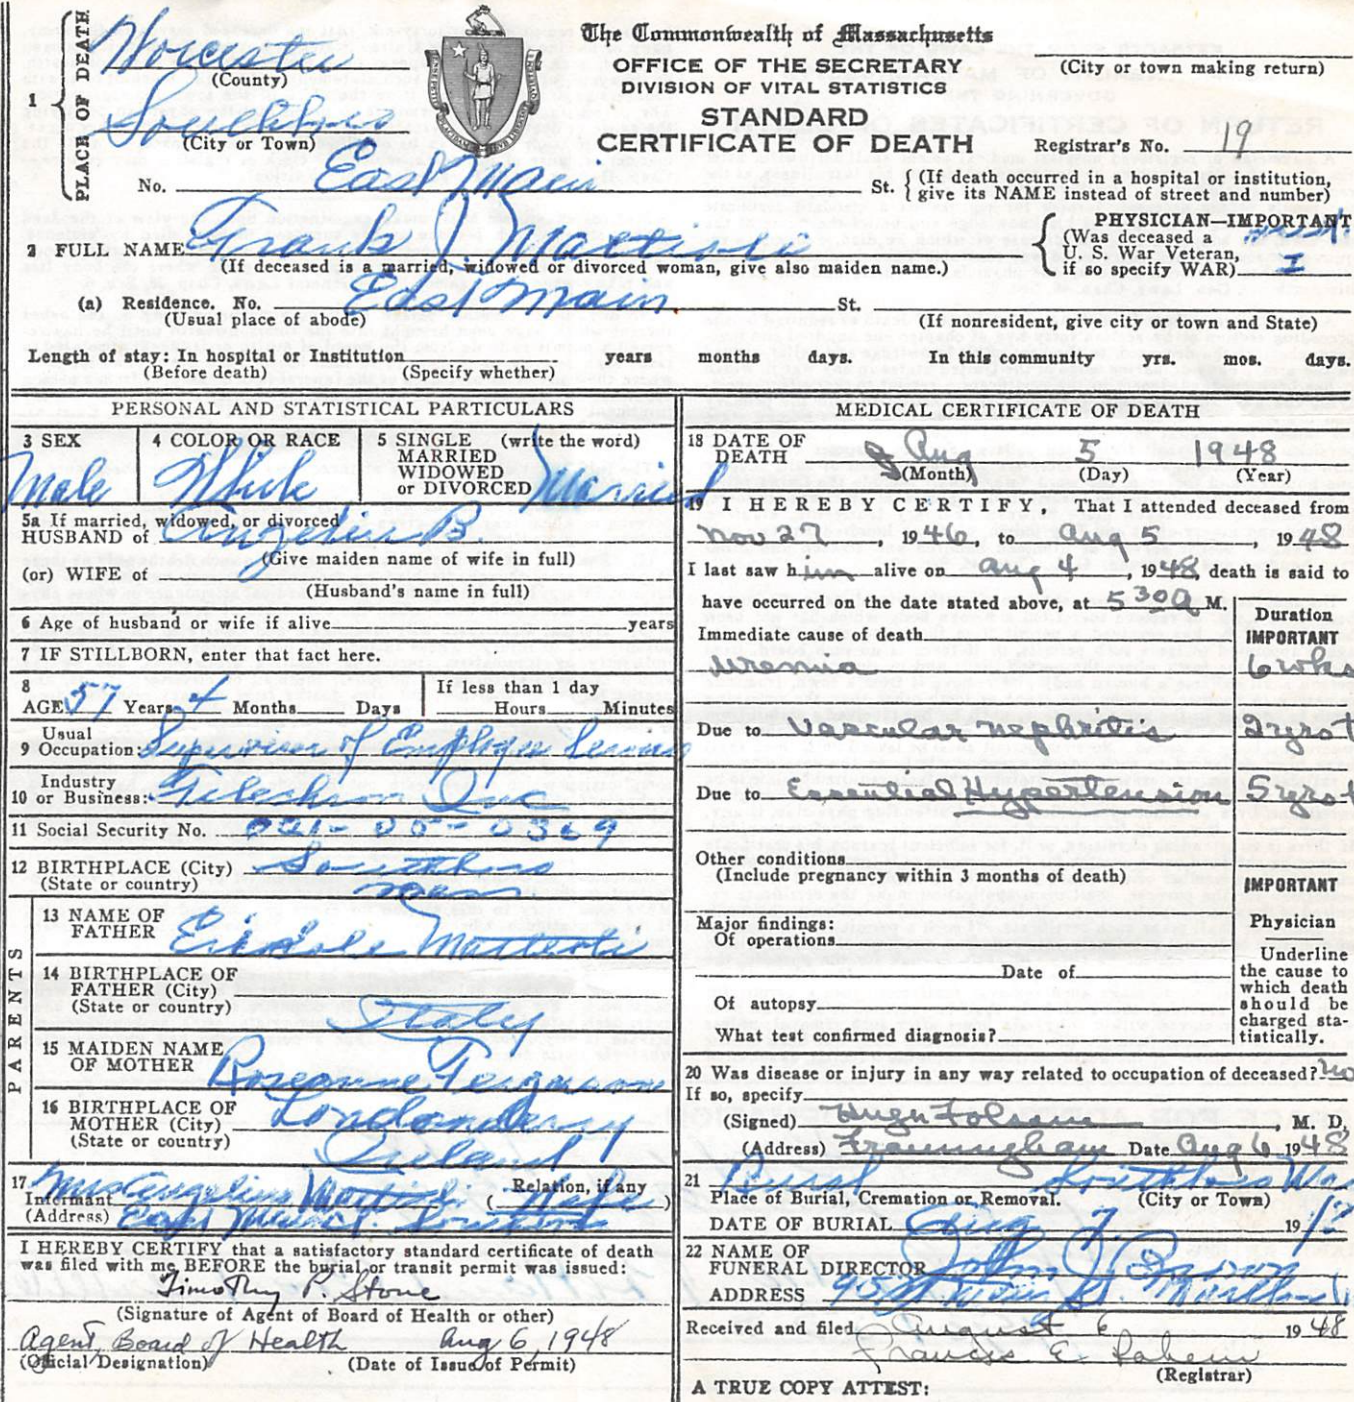 The Commonwealth of Massachusetts
OFFICE OF THE SECRETARY
DIVISION OF VITAL STATISTICS
STANDARD
CERTIFICATE OF DEATH
1 PLACE OF DEATH
Worcester
(County)
Southboro
(City or Town)
No. East Main St. { (If death occurred in a hospital or institution, give its NAME instead of street and number)
(City or town making return)
Registrar's No. 19
2 FULL NAME Frank J.
(If deceased is a married, widowed or divorced woman, give also maiden name.)
PHYSICIAN—IMPORTANT
(Was deceased a
U. S. War Veteran,
if so specify WAR) I
(a) Residence. No. East Main St.
(Usual place of abode)
(If nonresident, give city or town and State)
Length of stay: In hospital or Institution years months days. In this community yrs. mos. days.
(Before death) (Specify whether)
PERSONAL AND STATISTICAL PARTICULARS
3 SEX
Male
4 COLOR OR RACE
White
5 SINGLE (write the word)
MARRIED
WIDOWED
or DIVORCED Married
5a If married, widowed, or divorced
HUSBAND of Angelina B.
(Give maiden name of wife in full)
(or) WIFE of
(Husband's name in full)
6 Age of husband or wife if alive years
7 IF STILLBORN, enter that fact here.
8 AGE 57 Years 4 Months Days
If less than 1 day
Hours Minutes
9 Usual Occupation: Supervisor of Employee Service
10 Industry or Business: Telechron Inc
11 Social Security No. 021-05-0369
12 BIRTHPLACE (City) Southboro
(State or country) Mass
PARENTS
13 NAME OF
FATHER
14 BIRTHPLACE OF
FATHER (City)
(State or country) Italy
15 MAIDEN NAME
OF MOTHER Roseanne Ferguson
16 BIRTHPLACE OF
MOTHER (City) Londonderry
(State or country) Ireland
17 Informant Mrs Angelina (Relation, if any Wife)
(Address) East Main St.
I HEREBY CERTIFY that a satisfactory standard certificate of death
was filed with me BEFORE the burial or transit permit was issued:
Timothy P. Stone
(Signature of Agent of Board of Health or other)
Agent, Board of Health Aug 6, 1948
(Official Designation) (Date of Issue of Permit)
MEDICAL CERTIFICATE OF DEATH
18 DATE OF
DEATH Aug 5 1948
(Month) (Day) (Year)
19 I HEREBY CERTIFY, That I attended deceased from
Nov 27, 1946, to Aug 5, 1948
I last saw him alive on Aug 4, 1948, death is said to
have occurred on the date stated above, at 5 30 a M.
Duration
IMPORTANT
Immediate cause of death
Uremia 6 wks
Due to Vascular nephritis 2 yrs +
Due to Essential Hypertension 5 yrs +
Other conditions
(Include pregnancy within 3 months of death)
IMPORTANT
Major findings:
Of operations
Date of
Of autopsy
What test confirmed diagnosis?
Physician
Underline
the cause to
which death
should be
charged sta-
tistically.
20 Was disease or injury in any way related to occupation of deceased? No
If so, specify
(Signed) Hugh Folsom, M. D.
(Address) Framingham Date Aug 6 1948
21 Burial
Place of Burial, Cremation or Removal. (City or Town)
DATE OF BURIAL Aug 7, 19
22 NAME OF
FUNERAL DIRECTOR John J.
ADDRESS
Received and filed August 6 1948
Francis E.
(Registrar)
A TRUE COPY ATTEST: